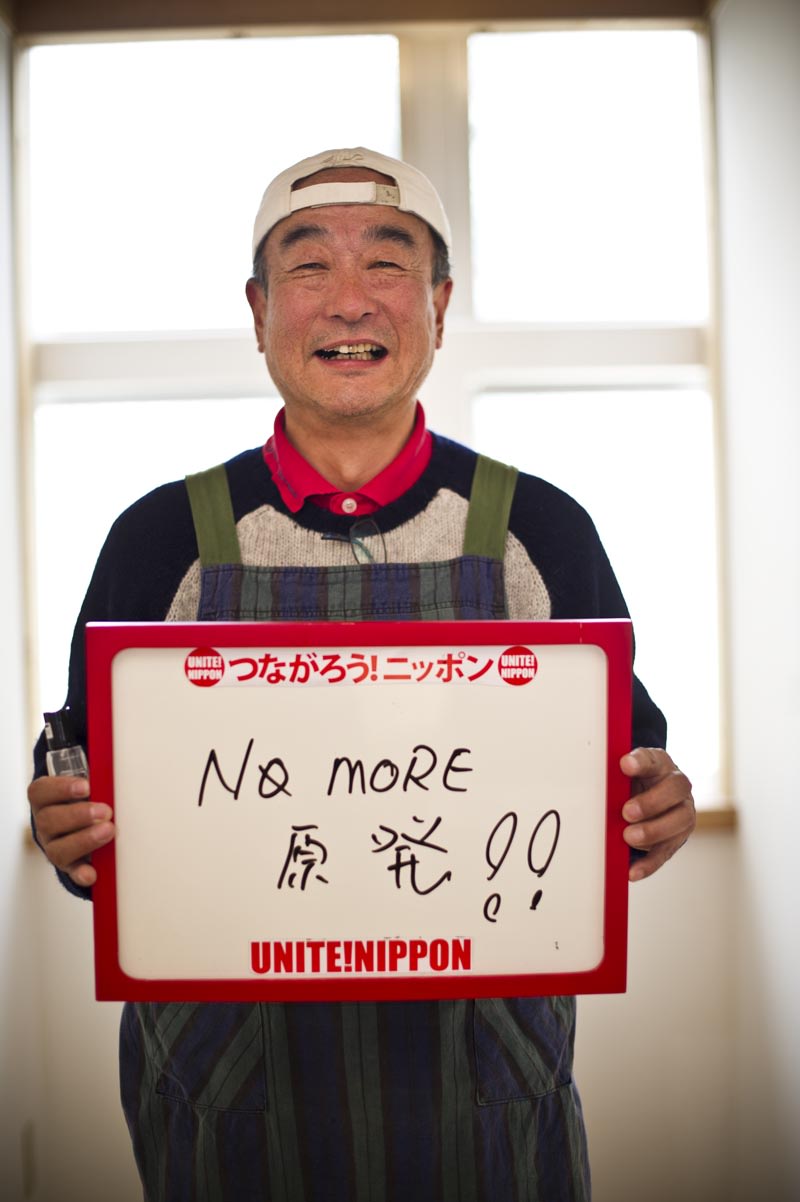 UNITE! NIPPON つながろう!ニッポン UNITE! NIPPON
NO MORE
原発!!
UNITE!NIPPON